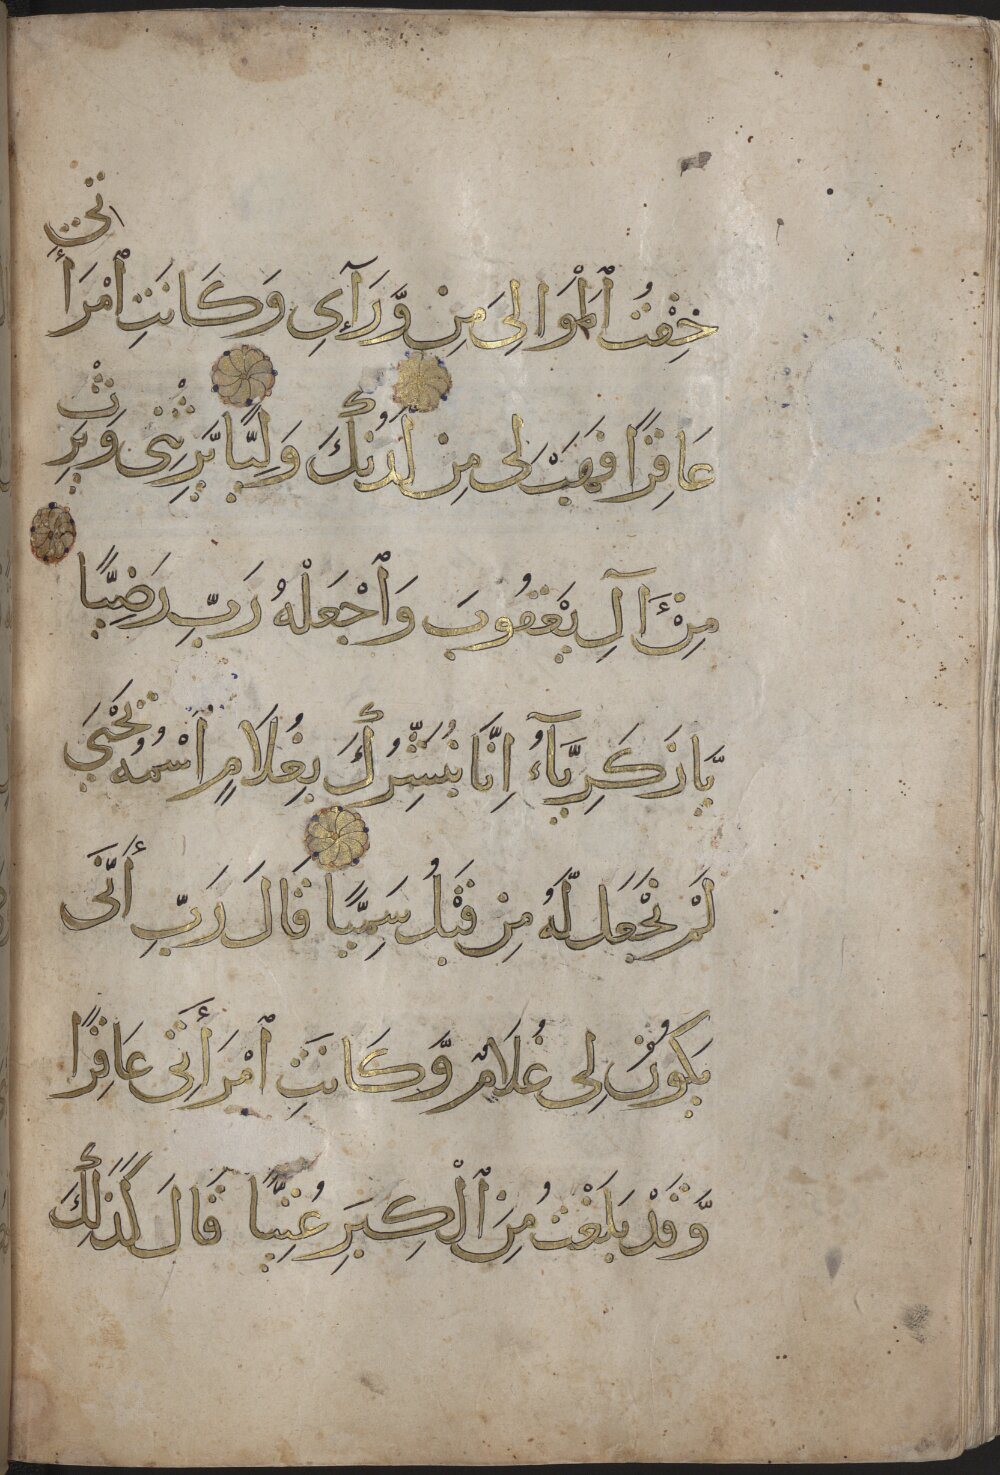 خِفْتُ ٱلْمَوَالِىَ مِن وَّرَآءِى وَكَانَتِ ٱمْرَأَتِى
عَاقِرًا فَهَبْ لِى مِن لَّدُنكَ وَلِيًّا يَّرِثُنِى وَيَرِثُ
مِنْ ءَالِ يَعْقُوبَ وَٱجْعَلْهُ رَبِّ رَضِيًّا
يَّازَكَرِيَّآءُ اِنَّا نُبَشِّرُكَ بِغُلَامٍ ٱسْمُهُ يَحْيَىٰ
لَمْ نَجْعَل لَّهُ مِن قَبْلُ سَمِيًّا قَالَ رَبِّ أَنَّى
يَكُونُ لِى غُلَامٌ وَّكَانَتِ ٱمْرَأَتِى عَاقِرًا
وَّقَدْ بَلَغْتُ مِنَ ٱلْكِبَرِ عُتِيًّا قَالَ كَذَلِكَ